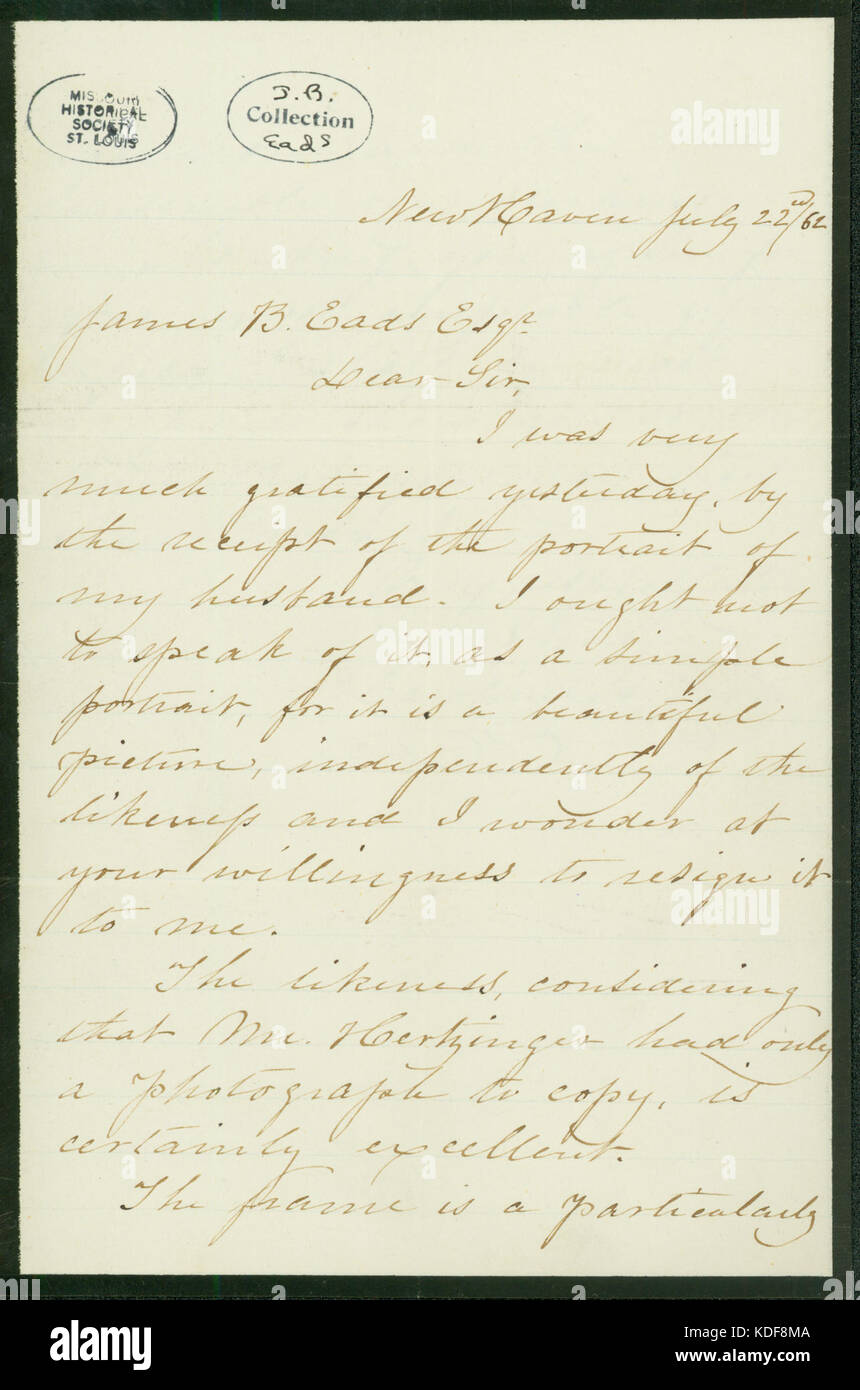 MISSOURI
HISTORICAL
SOCIETY
ST. LOUIS
J. B.
Collection
Eads
New Haven July 22nd/62
James B. Eads Esqr.
Dear Sir,
I was very
much gratified yesterday, by
the receipt of the portrait of
my husband. I ought not
to speak of it, as a simple
portrait, for it is a beautiful
picture, independently of the
likeness and I wonder at
your willingness to resign it
to me.
The likeness, considering
that Mr. Hertzinger had only
a photograph to copy, is
certainly excellent.
The frame is a particularly
alamy
Image ID: KDF8MA
www.alamy.com